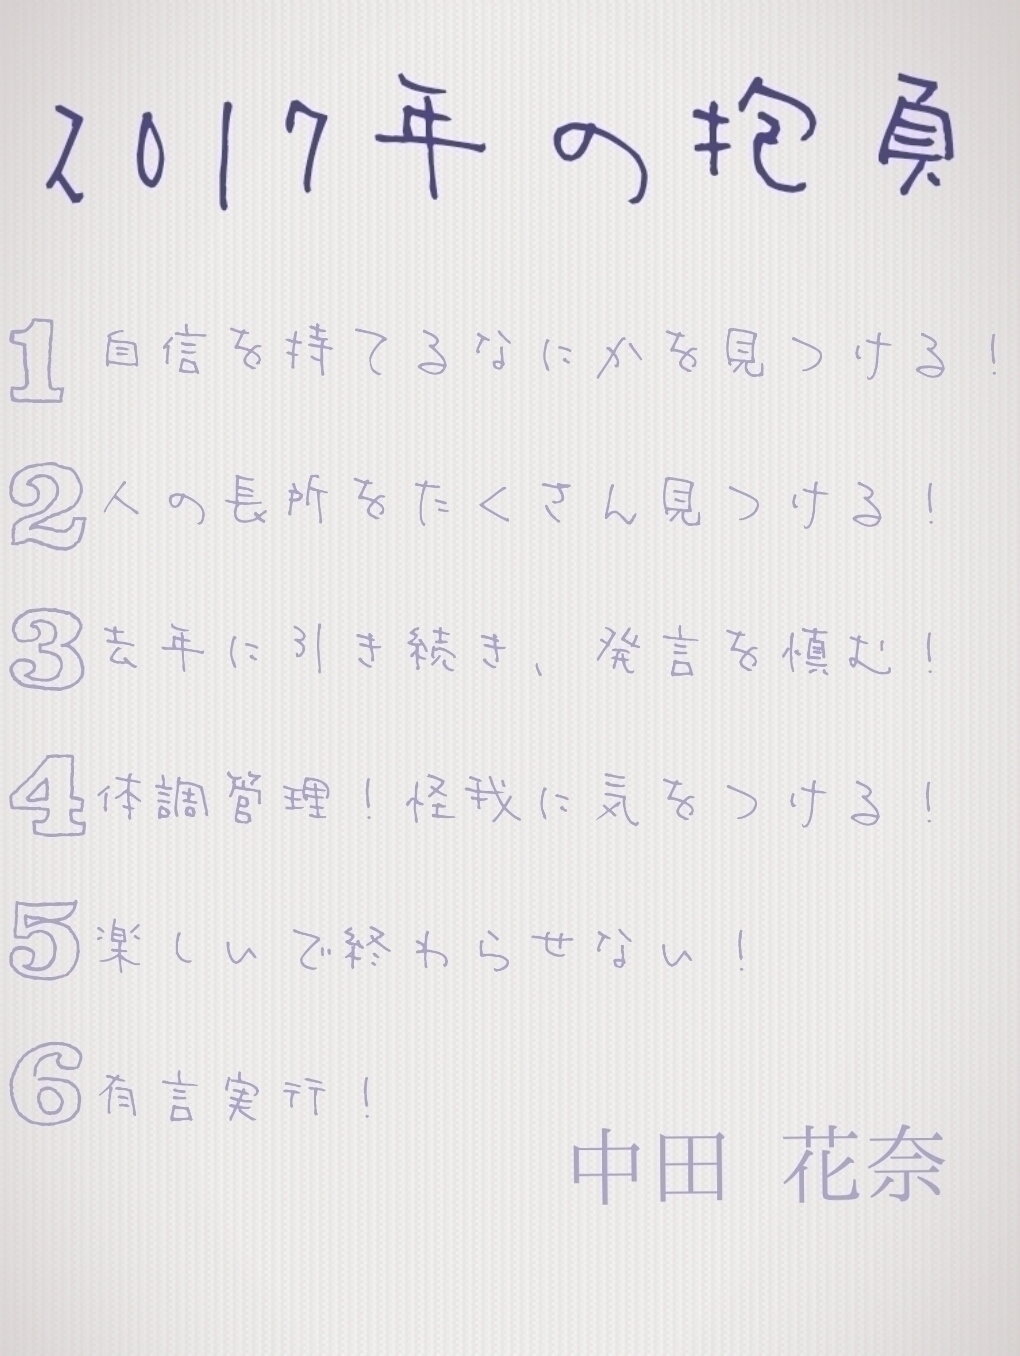 2017年の抱負
1 自信を持てるなにかを見つける！
2 人の長所をたくさん見つける！
3 去年に引き続き、発言を慎む！
4 体調管理！怪我に気をつける！
5 楽しいで終わらせない！
6 有言実行！
中田 花奈